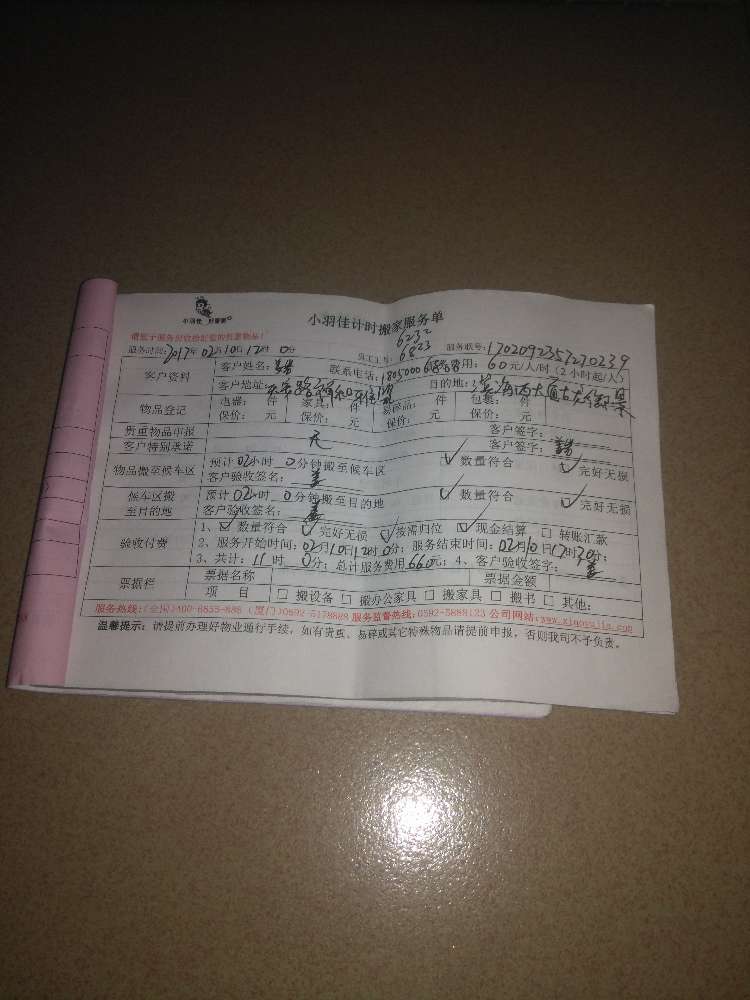 小羽佳 好管家
小羽佳计时搬家服务单
6232
服务时间：2017年02月10日12时0分 员工工号：6823 服务联号：1702092357270239
客户资料 客户姓名： 联系电话：18050006868 费用：60元/人/时（2小时起/人）
客户地址： 目的地：
物品登记 电器： 件 家具： 件 易碎品： 件 包裹： 件
保价： 元 保价： 元 保价： 元 保价： 元
贵重物品申报 无 客户签字：
客户特别承诺 客户签字：
物品搬至候车区 预计02小时0分钟搬至候车区 ✓数量符合 ✓完好无损
客户验收签名：
候车区搬至目的地 预计02小时0分钟搬至目的地 ✓数量符合 ✓完好无损
客户验收签名：
验收付费 1、☑数量符合 ☑完好无损 ☑按需归位 ☑现金结算 □转账汇款
2、服务开始时间：02月10日12时0分；服务结束时间：02月10日17时30分；
3、共计：11时0分；总计服务费用660元；4、客户验收签字：
票据栏 票据名称 票据金额
项 目 □搬设备 □搬办公家具 □搬家具 □搬书 □其他：
服务热线：（全国）400-8855-888（厦门）0592-5178888 服务监督热线：0592-5888123 公司网站：www.xiaoyujia.com
温馨提示：请提前办理好物业通行手续，如有贵重、易碎或其它特殊物品请提前申报，否则我司不予负责。